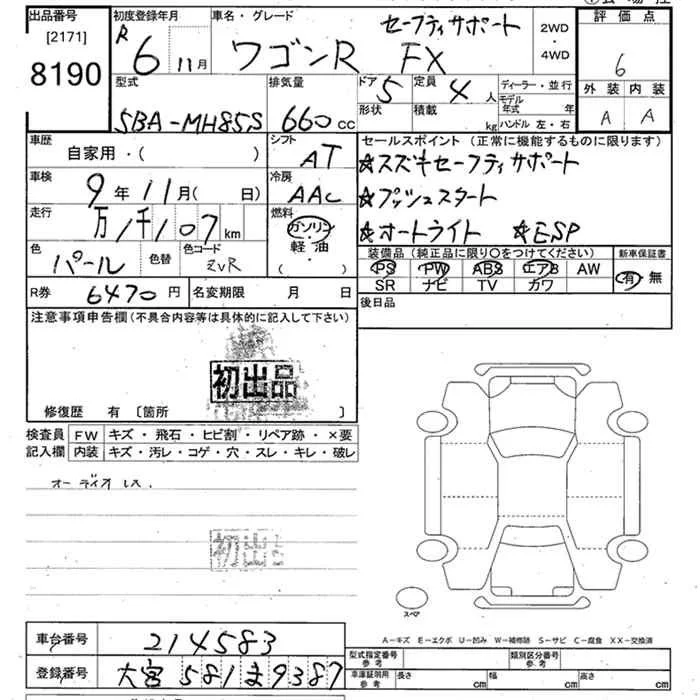 出品番号 初度登録年月 車名・グレード セーフティサポート 2WD・4WD 評価点
[2171]
8190 R 6 11月 ワゴンR FX 6
型式 排気量 ドア 5 定員 4人 ディーラー・並行 外装 内装
5BA-MH85S 660cc 形状 積載 kg モデル年式 年 ハンドル 左・右 A A
車歴 シフト セールスポイント (正常に機能するものに限ります)
自家用・( ) AT ★スズキセーフティサポート
車検 9年11月( 日) 冷房 AAC ★プッシュスタート
走行 万1千107km 燃料 ガソリン 軽油 ( ) ★オートライト ★ESP
色 パール 色替 色コード ZVR
装備品 (純正品に限り○をつけてください) 新車保証書
PS PW ABS エアB AW 有・無
SR ナビ TV カワ
R券 6470円 名変期限 月 日 後日品
注意事項申告欄(不具合内容等は具体的に記入して下さい)
初出品
修復歴 有 〔箇所 〕
検査員 FW キズ・飛石・ヒビ割・リペア跡・×要
記入欄 内装 キズ・汚レ・コゲ・穴・スレ・キレ・破レ
オーディオレス.
初出
スペア
A-キズ E-エクボ U-凹み W-補修跡 S-サビ C-腐食 XX-交換済
車台番号 214583
型式指定番号 参考 類別区分番号 参考
登録番号 大宮 581 ま 9387
車庫証明用 参考 長さ cm 幅 cm 高さ cm